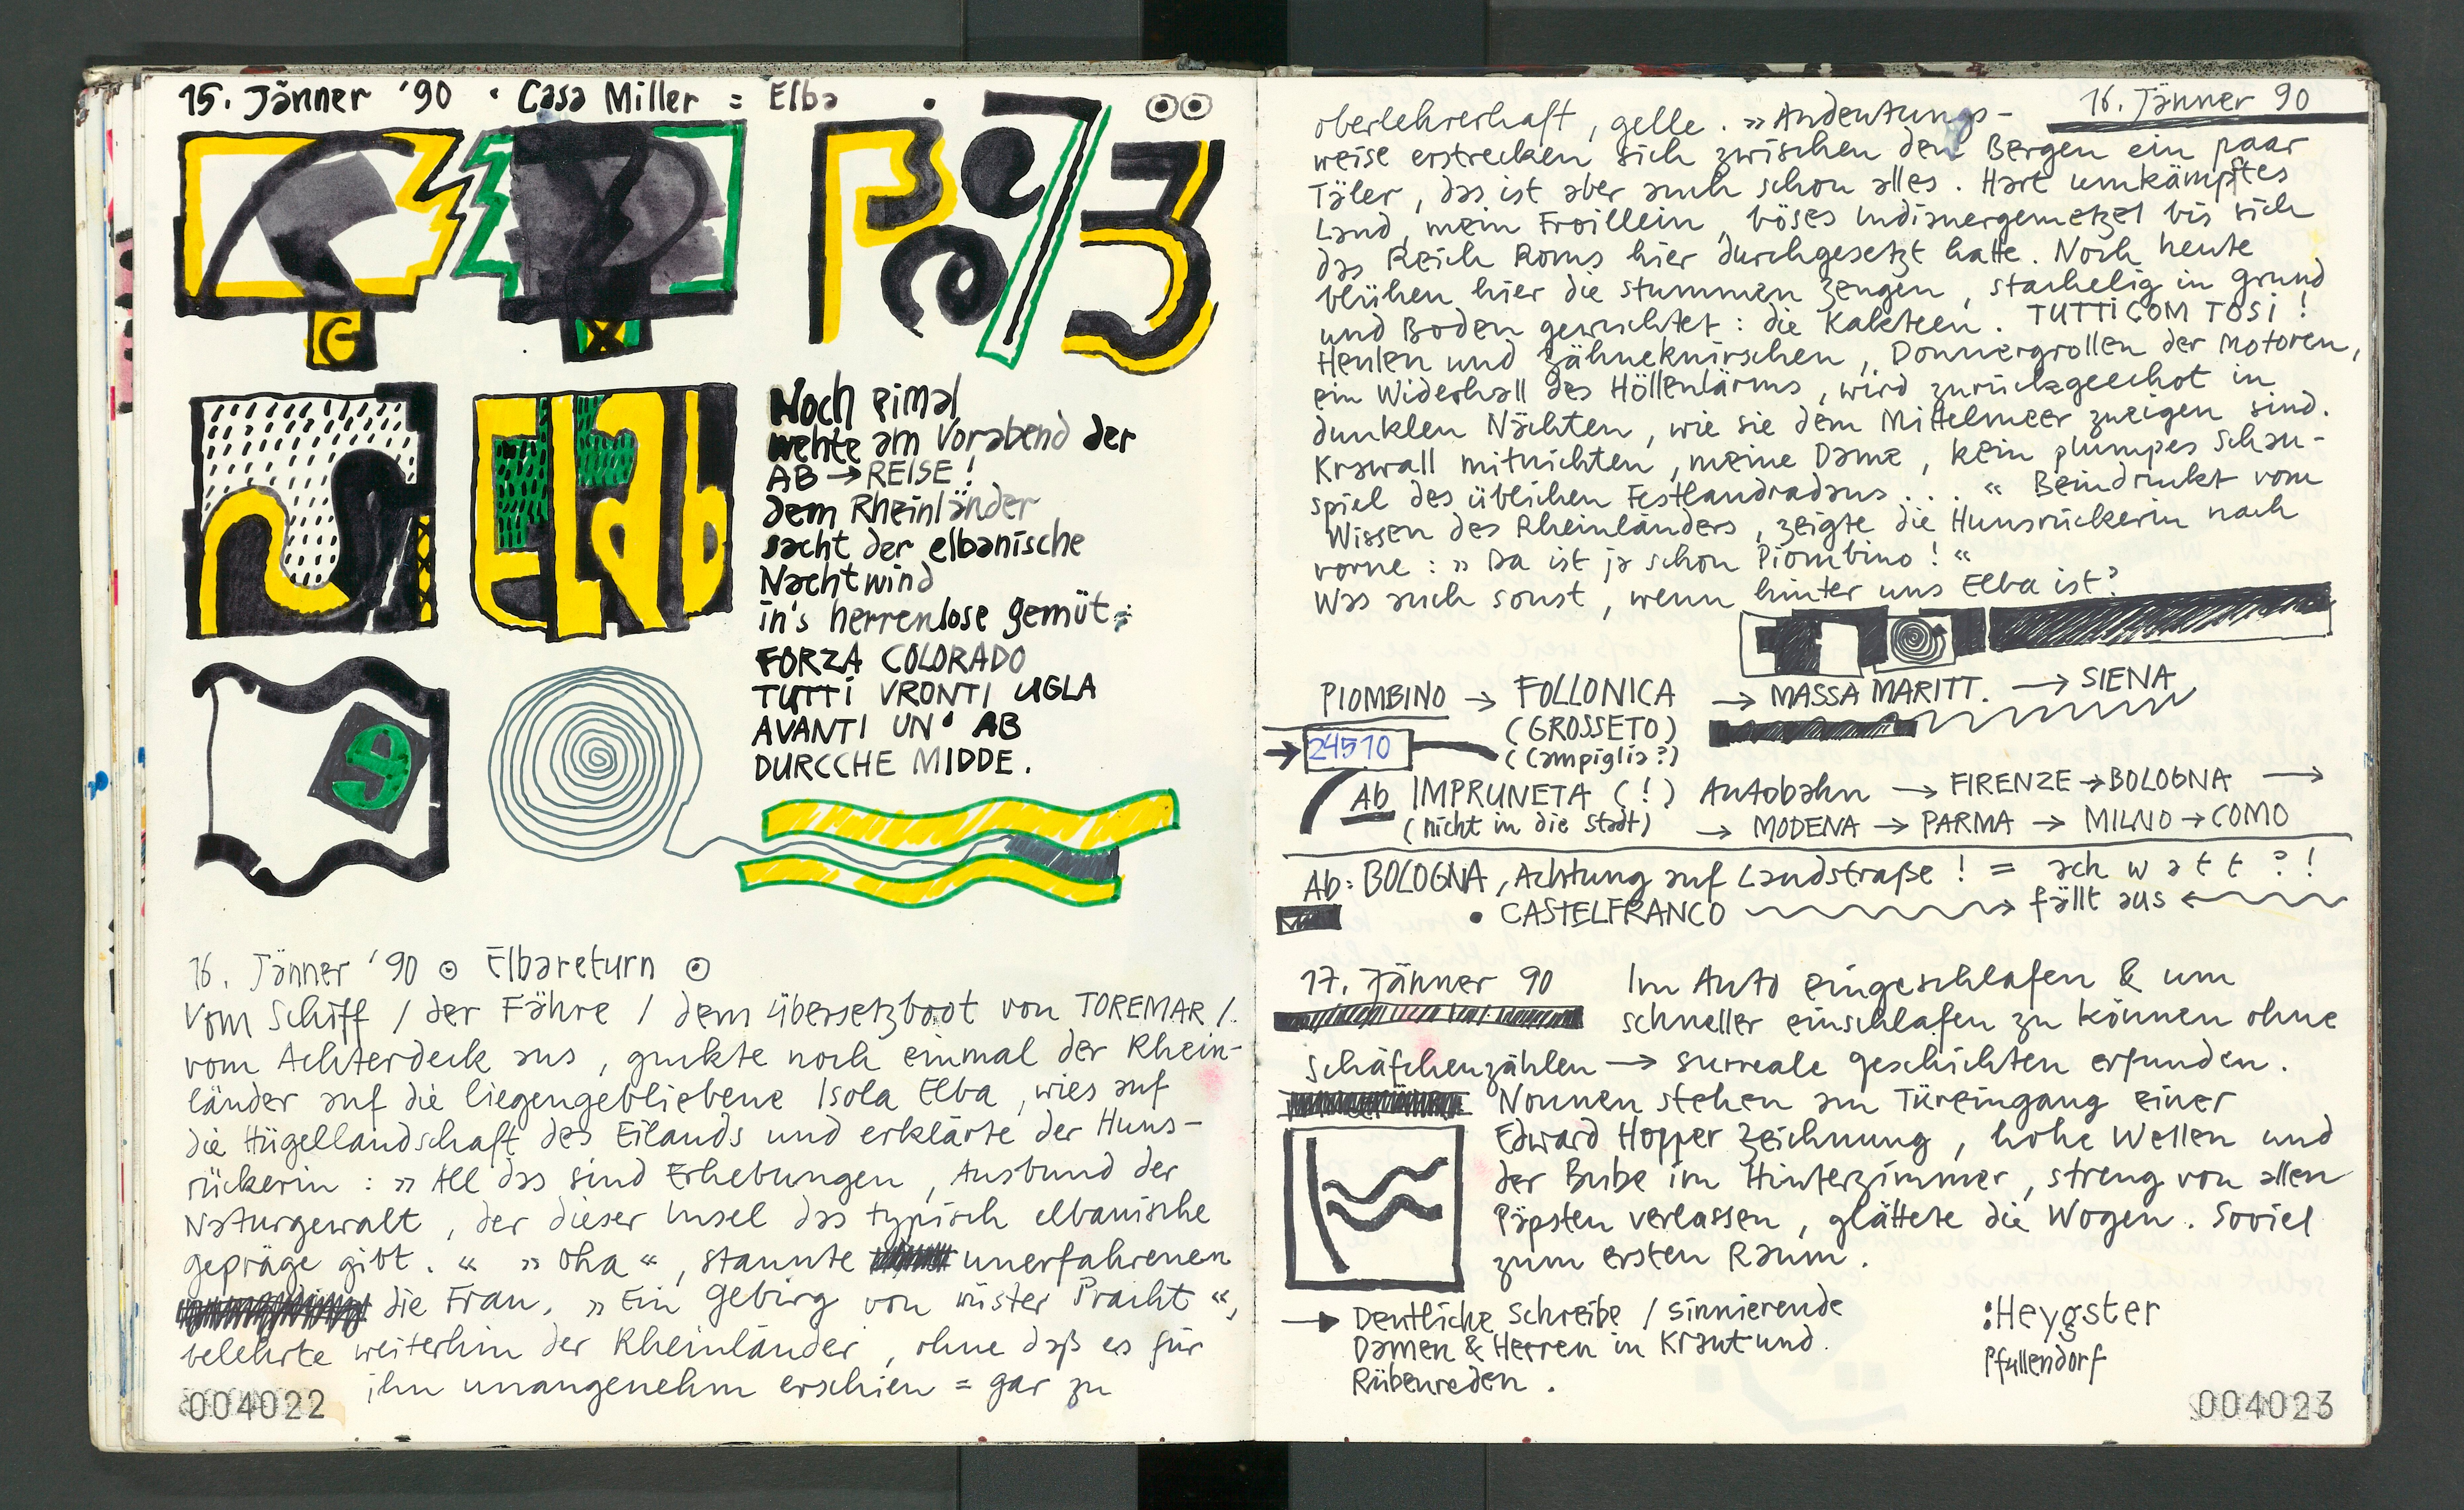 15. Jänner '90 · Casa Miller = Elba
Elab
9
Noch eimal
wehte am Vorabend der
AB → REISE!
dem Rheinländer
sacht der elbanische
Nachtwind
in's herrenlose gemüt:
FORZA COLORADO
TUTTi VRONTI UGLA
AVANTI UN' AB
DURCCHE MIDDE.
16. Jänner '90 ⊙ Elbareturn ⊙
Vom Schiff / der Fähre / dem Übersetzboot von TOREMAR /
vom Achterdeck aus, guckte noch einmal der Rhein-
länder auf die liegengebliebene Isola Elba, wies auf
die Hügellandschaft des Eilands und erklärte der Huns-
rückerin: » All das sind Erhebungen, Ausbund der
Naturgewalt, der dieser Insel das typisch elbanische
gepräge gibt. « » Oha «, staunte unerfahrenen
die Frau. » Ein Gebirg von wüster Pracht «,
belehrte weiterhin der Rheinländer, ohne daß es für
ihn unangenehm erschien = gar zu
004022
16. Jänner 90
oberlehrerhaft, gelle. » Andeutungs-
weise erstrecken sich zwischen den Bergen ein paar
Täler, das ist aber auch schon alles. Hart umkämpftes
Land, mein Froillein, böses Indianergemetzel bis sich
das Reich Roms hier durchgesetzt hatte. Noch heute
blühen hier die stummen Zeugen, stachelig in Grund
und Boden gewuchtet: die Kakteen. TUTTi COM TOSi!
Heulen und Zähneknirschen, Donnergrollen der Motoren,
ein Widerhall des Höllenlärms, wird zurückgeechot in
dunklen Nächten, wie sie dem Mittelmeer zueigen sind.
Krawall mitnichten, meine Dame, kein plumpes Schau-
spiel des üblichen Festlandradaus.... « Beindruckt vom
Wissen des Rheinländers, zeigte die Hunsrückerin nach
vorne: » Da ist ja schon Piombino! «
Was auch sonst, wenn hinter uns Elba ist?
PIOMBINO → FOLLONICA → MASSA MARITT. → SIENA
(GROSSETO)
→ 24510 (Campiglia?)
Ab IMPRUNETA (!) Autobahn → FIRENZE → BOLOGNA →
(nicht in die Stadt) → MODENA → PARMA → MILNO → COMO
Ab: BOLOGNA, Achtung auf Landstraße! = ach watt?!
• CASTELFRANCO → fällt aus ←
17. Jänner 90 Im Auto eingeschlafen & um
schneller einschlafen zu können ohne
Schäfchenzählen → surreale geschichten erfunden.
Nonnen stehen am Türeingang einer
Edward Hopper Zeichnung, hohe Wellen und
der Bube im Hinterzimmer, streng von allen
Päpsten verlassen, glättete die Wogen. Soviel
zum ersten Raum.
→ Deutliche Schreibe / sinnierende
Damen & Herren in Kraut und
Rübenreden.
:Heygster
Pfullendorf
004023